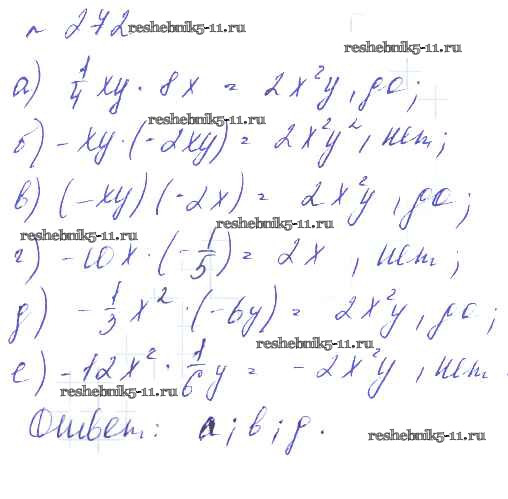 ~ 272 reshebnik5-11.ru
reshebnik5-11.ru
а) 1/4 xy · 8x = 2x²y, да;
reshebnik5-11.ru
б) -xy · (-2xy) = 2x²y², нет;
в) (-xy) (-2x) = 2x²y, да;
reshebnik5-11.ru
reshebnik5-11.ru
г) -10x · (-1/5) = 2x, нет;
д) -1/3 x² · (-6y) = 2x²y, да;
reshebnik5-11.ru
е) -12x² · 1/6 y = -2x²y, нет.
reshebnik5-11.ru
Ответ: а; в; д.
reshebnik5-11.ru